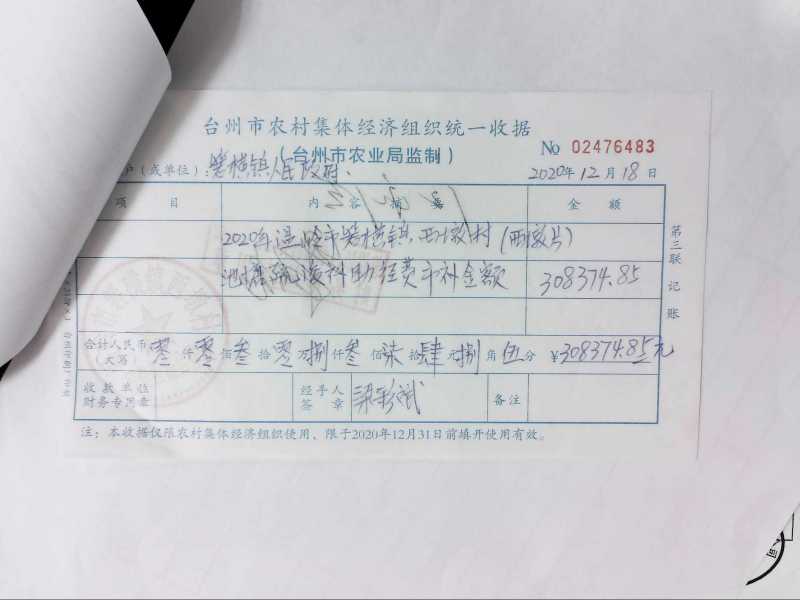 台州市农村集体经济组织统一收据
（台州市农业局监制） No 02476483
户（或单位）：箬横镇人民政府. 2020年12月18日
项 目 内 容 摘 要 金 额
2020年温岭市箬横镇西 村（ 片）
池塘疏浚 补助经费 补金额 308374.85
合计人民币（大写） 零仟零佰叁拾零万捌仟叁佰柒拾肆元捌角伍分 ¥308374.85元
收款单位财务专用章 经手人签章 梁彩斌 备注
注：本收据仅限农村集体经济组织使用、限于2020年12月31日前填开使用有效。
第三联 记账